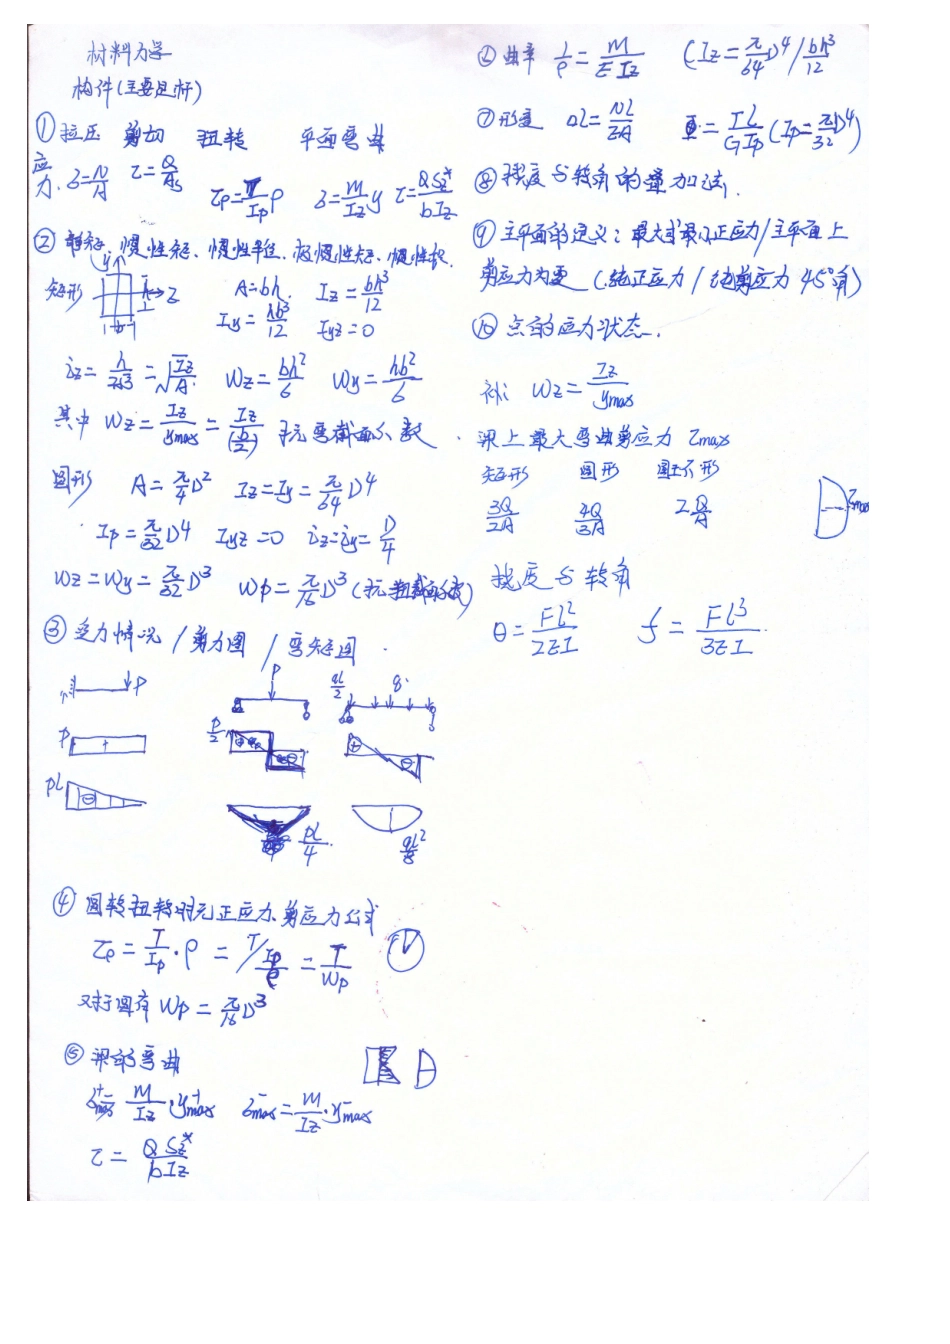 材料力学
构件(主要是杆)
① 拉压 剪切 扭转 平面弯曲
应力. σ=N/A τ=Q/As τρ=T/Ip ρ σ=M/Iz y τ=QSz*/bIz
② 静矩、惯性矩、惯性半径、极惯性矩、惯性积.
矩形 y Z h b A=bh. Iz=bh³/12
Iy=hb³/12 Iyz=0
iz=h/2√3=√(Iz/A). Wz=bh²/6 Wy=hb²/6
其中 Wz=Iz/ymax=Iz/(h/2) 抗弯截面系数.
圆形 A=π/4 D² Iz=Iy=π/64 D⁴
Ip=π/32 D⁴ Iyz=0 iz=iy=D/4
Wz=Wy=π/32 D³ Wp=π/16 D³(抗扭截面系数)
③ 受力情况/剪力图/弯矩图.
P P qL/2 q
P + P/2 ⊕ ⊖ ⊕ ⊖
PL ⊖ PL/4 qL²/8
④ 圆轴扭转时无正应力、剪应力公式
τρ=T/Ip·ρ=T/(Ip/ρ)=T/Wp
又对于圆有 Wp=π/16 D³
⑤ 梁的弯曲
σ⁺max=M/Iz·y⁺max σ⁻max=M/Iz·y⁻max
τ=QSz*/bIz
⑥ 曲率 1/ρ=M/EIz (Iz=π/64 D⁴/bh³/12
⑦ 形变 ΔL=NL/EA Φ=TL/GIp(Ip=π/32 D⁴)
⑧ 挠度与转角的叠加法.
⑨ 主平面的定义:最大或最小正应力/主平面上
剪应力为零(纯正应力/纯剪应力45°角)
⑩ 点的应力状态.
补: Wz=Iz/ymax
梁上最大弯曲剪应力 τmax
矩形 圆形 圆环形
3Q/2A 4Q/3A 2Q/A τmax
挠度与转角
θ=FL²/2EI f=FL³/3EI.